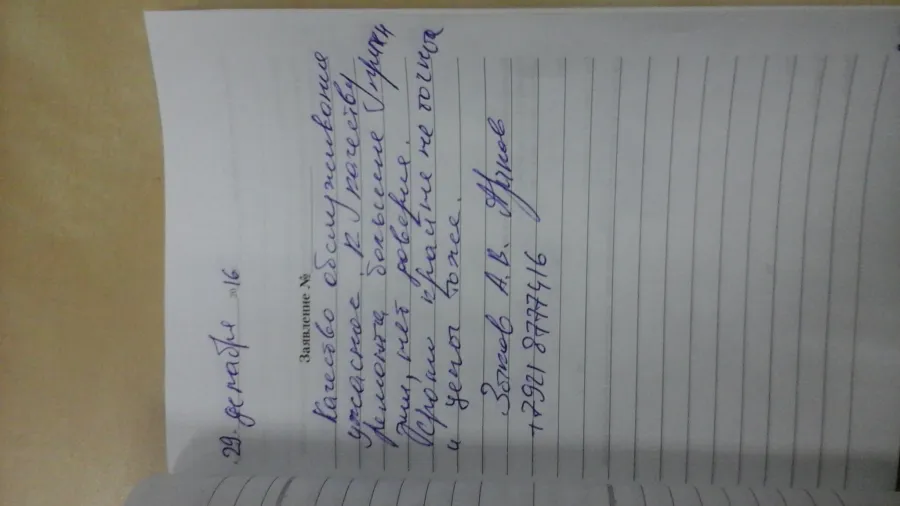 29. декабря 2016
Заявление №
Качество обслуживания
ужасное. К качеству
ремонта большие
нет доверия.
Сроки крайне не точны
и цены тоже.
А.В.
+7921 8777416